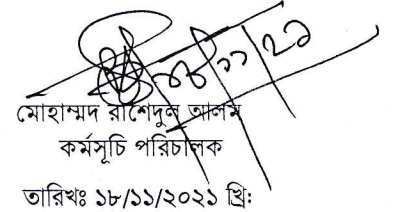 ১৮/১১/২১
মোহাম্মদ রাশেদুল আলম
কর্মসূচি পরিচালক
তারিখঃ ১৮/১১/২০২১ খ্রি: